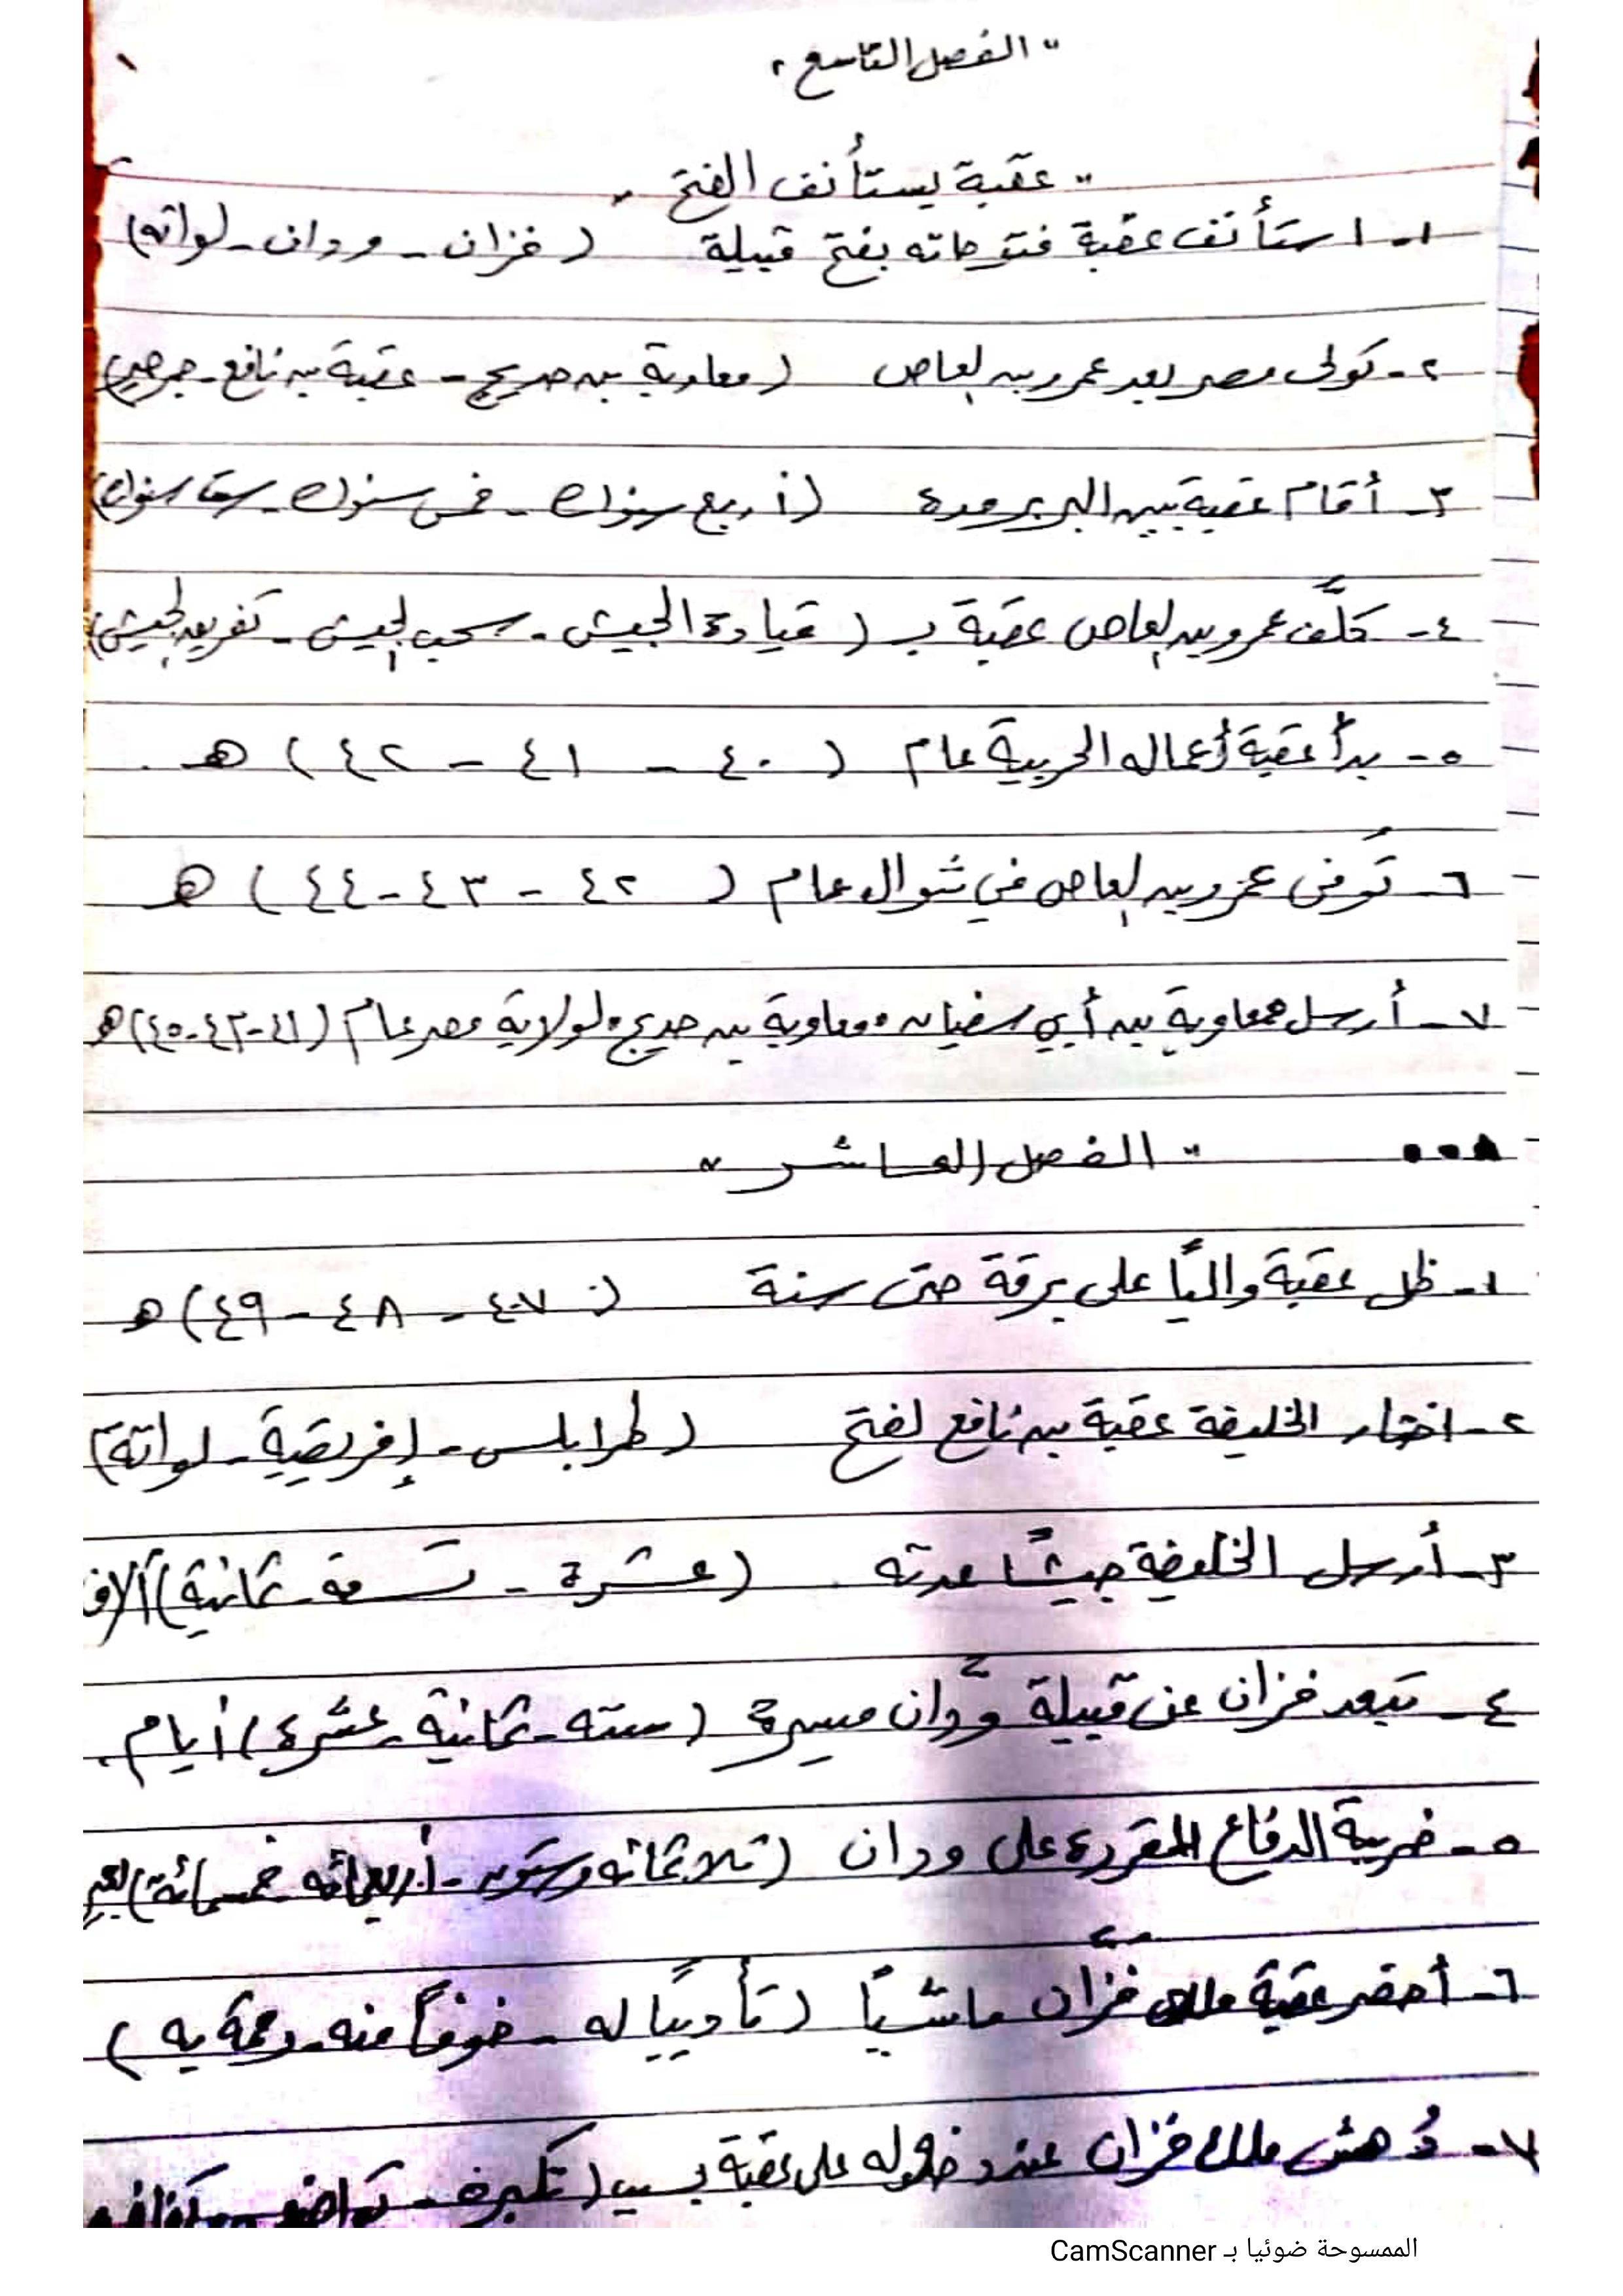 " الفصل التاسع "
" عقبة يستأنف الفتح "
١- استأنف عقبة فتوحاته بفتح قبيلة ( فزان - ودان - لواته)
٢- تولى مصر بعد عمرو بن العاص ( معاوية بن حديج - عقبة بن نافع - جرجير)
٣- أقام عقبة بين البربر مدة (أربع سنوات - خمس سنوات - ست سنوات)
٤- كلَّف عمرو بن العاص عقبة بـ ( قيادة الجيش - سحب الجيش - تفريق الجيش)
٥- بدأ عقبة أعماله الحربية عام ( ٤٠ - ٤١ - ٤٢ ) هـ .
٦- تُوفى عمرو بن العاص في شوال عام ( ٤٢ - ٤٣ - ٤٤ ) هـ
٧- أرسل معاوية بن أبي سفيان معاوية بن حديج لولاية مصر عام (٤١-٤٣-٤٥) هـ
" الفصل العاشر "
١- ظل عقبة والياً على برقة حتى سنة ( ٤٧ - ٤٨ - ٤٩) هـ
٢- اختار الخليفة عقبة بن نافع لفتح ( طرابلس - إفريقية - لواتة)
٣- أرسل الخليفة جيشاً عدته (عشرة - تسعة - ثمانية) آلاف
٤- تبعد فزان عن قبيلة ودَّان مسيرة ( سته - ثمانية - عشرة) أيام .
٥- ضريبة الدفاع المقررة على ودان (ثلاثمائه وستون - أربعمائه - خمسمائة) بعير
٦- أحضر عقبة ملك فزَّان ماشياً ( تأديبًا له - خوفاً منه - رحمة به )
٧- دُهش ملك فزان عند دخوله على عقبة بسبب ( تكبره - تواضع
الممسوحة ضوئيا بـ CamScanner